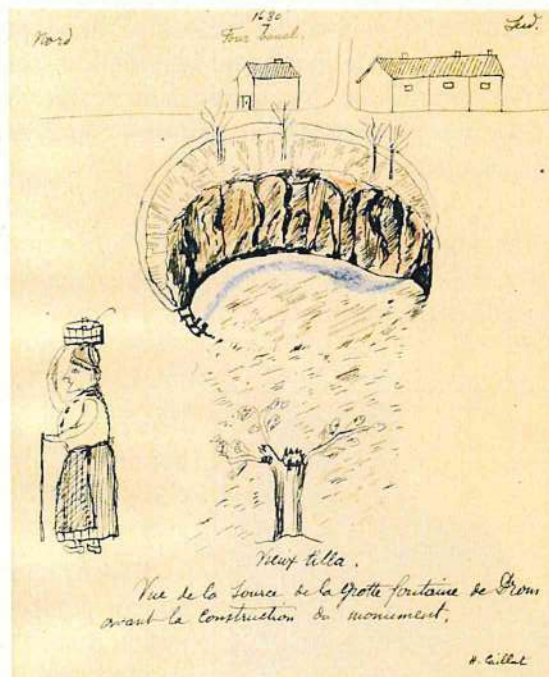 1630
Nord
Four banal.
Sud.
Vieux tilla.
Vue de la Source de la Grotte fontaine de Drom
avant la Construction du monument.
H. Caillat